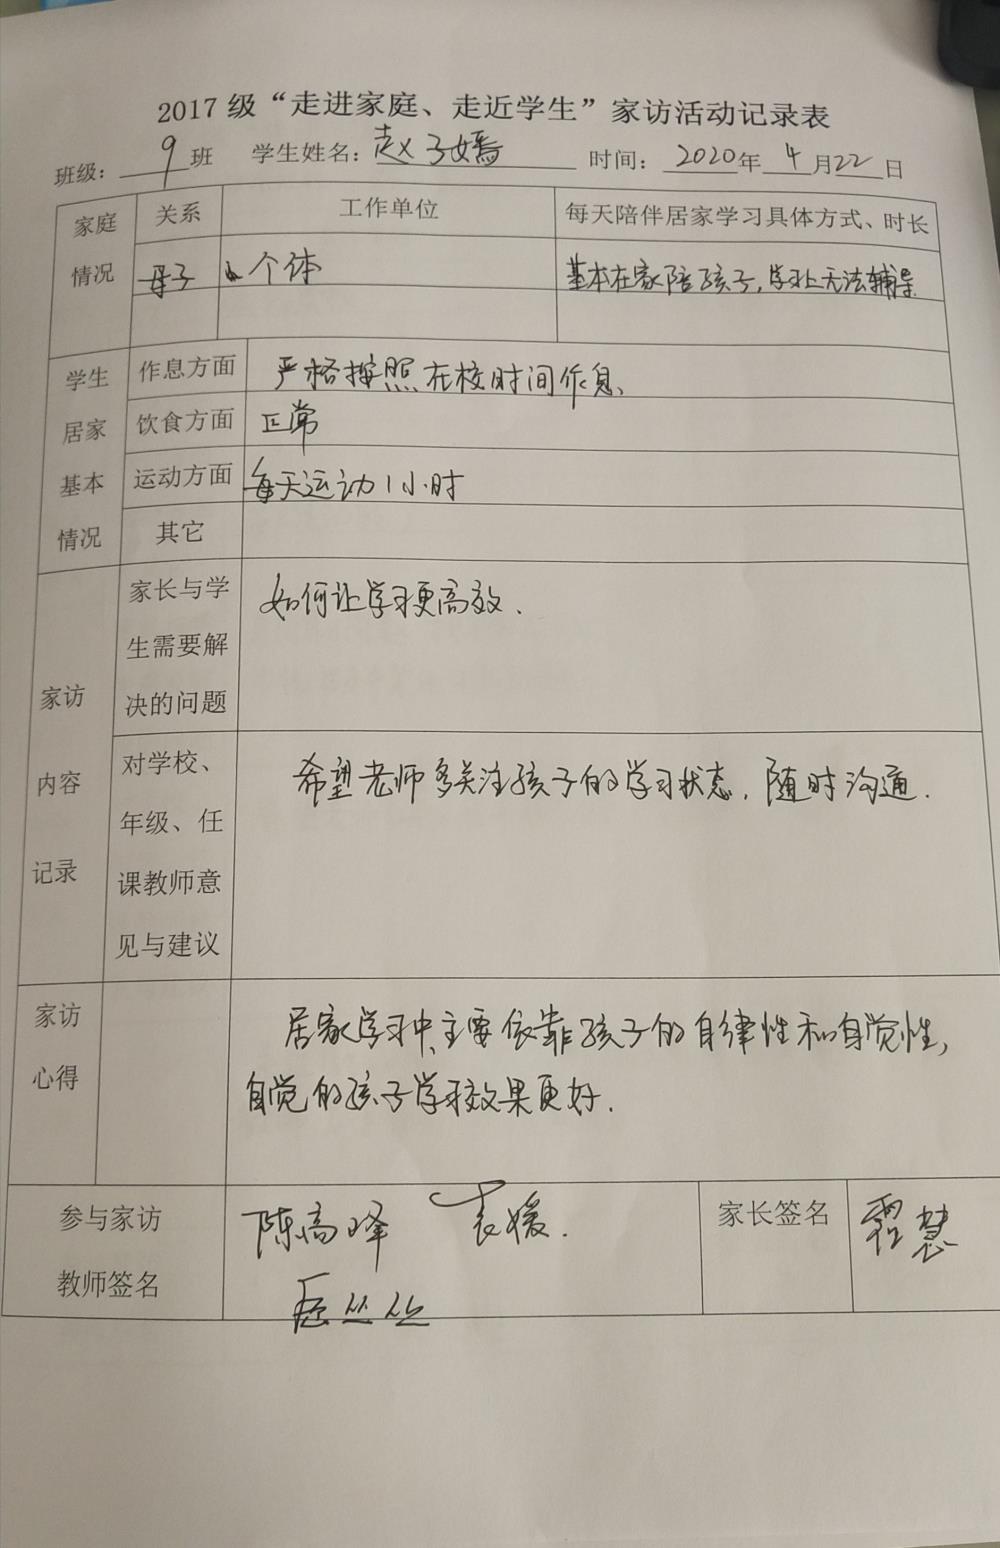 2017级“走进家庭、走近学生”家访活动记录表
班级：9班 学生姓名：赵子嫣 时间：2020年4月22日
家庭情况 关系 工作单位 每天陪伴居家学习具体方式、时长
母子 个体 基本在家陪孩子，学习上无法辅导
学生居家基本情况 作息方面 严格按照在校时间作息、
饮食方面 正常
运动方面 每天运动1小时
其它
家访内容记录 家长与学生需要解决的问题 如何让学习更高效.
对学校、年级、任课教师意见与建议 希望老师多关注孩子的学习状态，随时沟通.
家访心得 居家学习中，主要依靠孩子的自律性和自觉性，
自觉的孩子学习效果更好.
参与家访教师签名 陈高峰 袁媛. 家长签名
丛丛